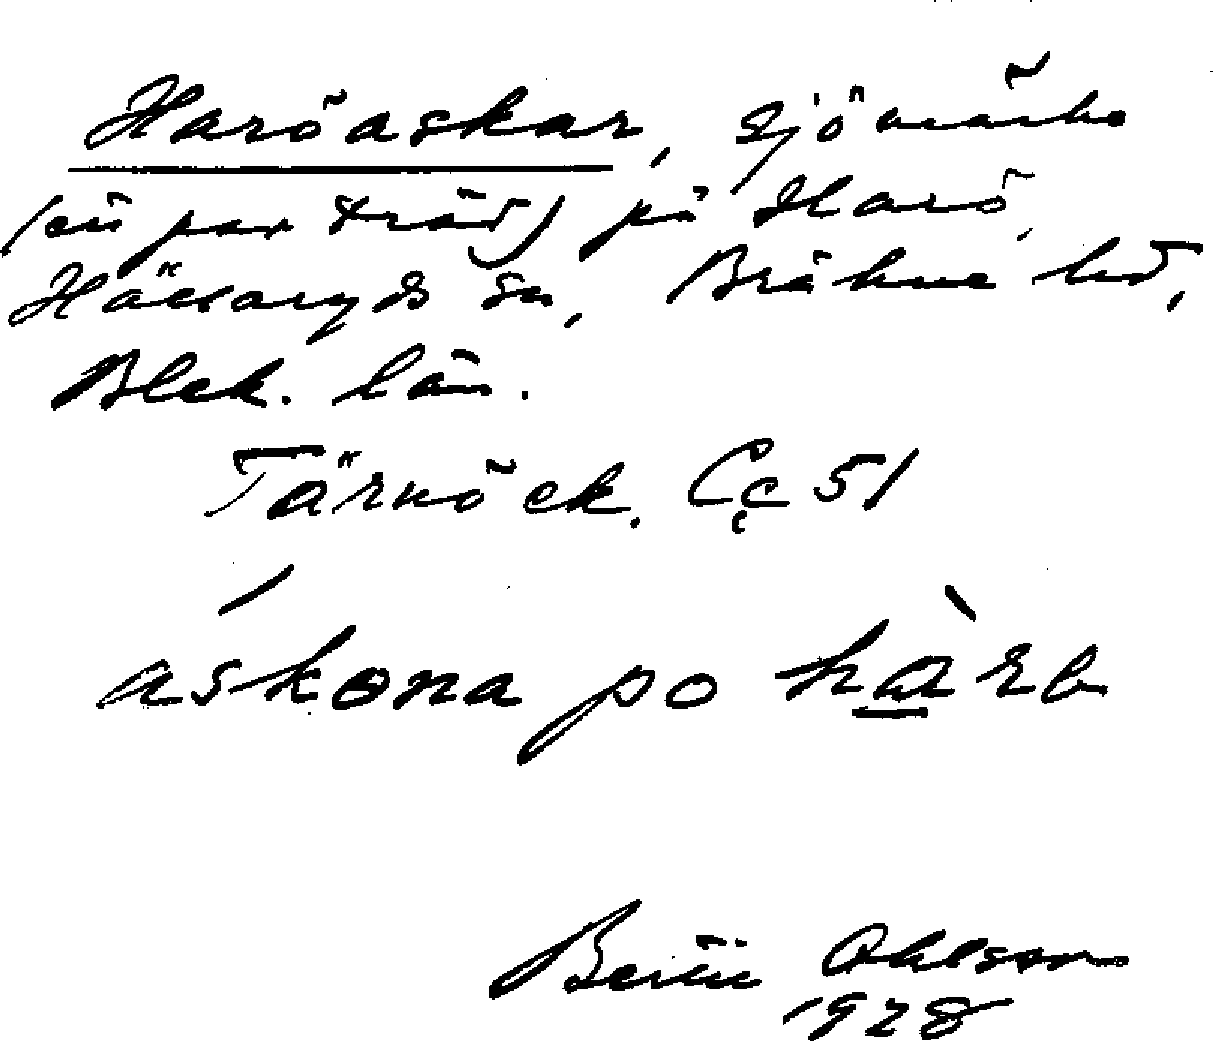 Haröaskar, sjömärke
(ett par träd) på Harö,
Hällaryds sn, Bräkne hd,
Blek. län.
Tärnö ek. Cç 51
áskona po hàrö
Bertil Ohlsson
1928